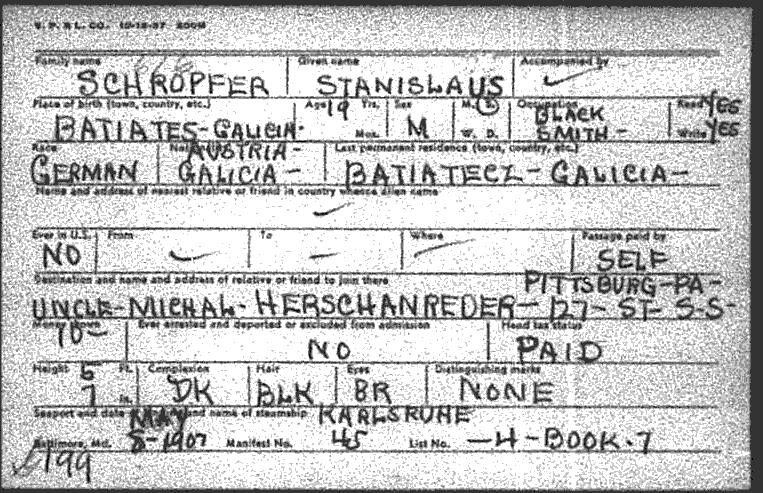 V. P. & L. CO. 10-18-37 200M
Family name Given name Accompanied by
SCHROPFER STANISLAUS ✓
Place of birth (town, country, etc.) Age 19 Yrs. Sex M. (S) Occupation BLACK Read YES
BATIATES-GALICIA- Mos. M W. D. SMITH- Write YES
Race AUSTRIA- Last permanent residence (town, country, etc.)
GERMAN GALICIA- BATIATECZ-GALICIA-
Name and address of nearest relative or friend in country whence alien came
✓
Ever in U.S. From To Where Passage paid by
NO ✓ – – SELF
Destination and name and address of relative or friend to join there PITTSBURG-PA-
UNCLE-MICHAL-HERSCHANREDER-127-ST-S-S-
Money shown Ever arrested and deported or excluded from admission Head tax status
10- NO PAID
Height 5 Ft. Complexion Hair Eyes Distinguishing marks
7 in. DK BLK BR NONE
Seaport and date MAY and name of steamship KARLSRUHE
Baltimore, Md. 8-1907 Manifest No. 45 List No. -4-BOOK.7
199